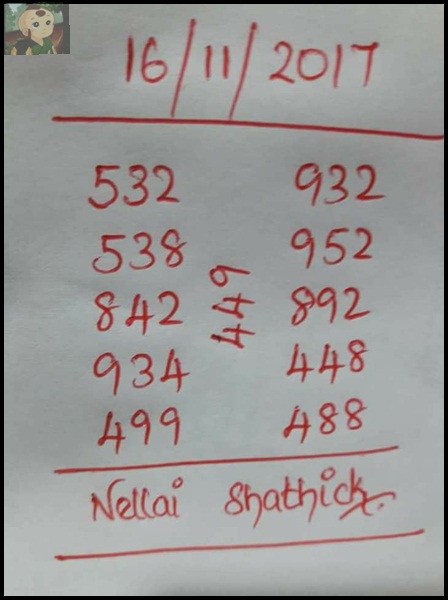 16/11/2017
532 932
538 952
842 892
934 448
499 488
449
Nellai Shathick